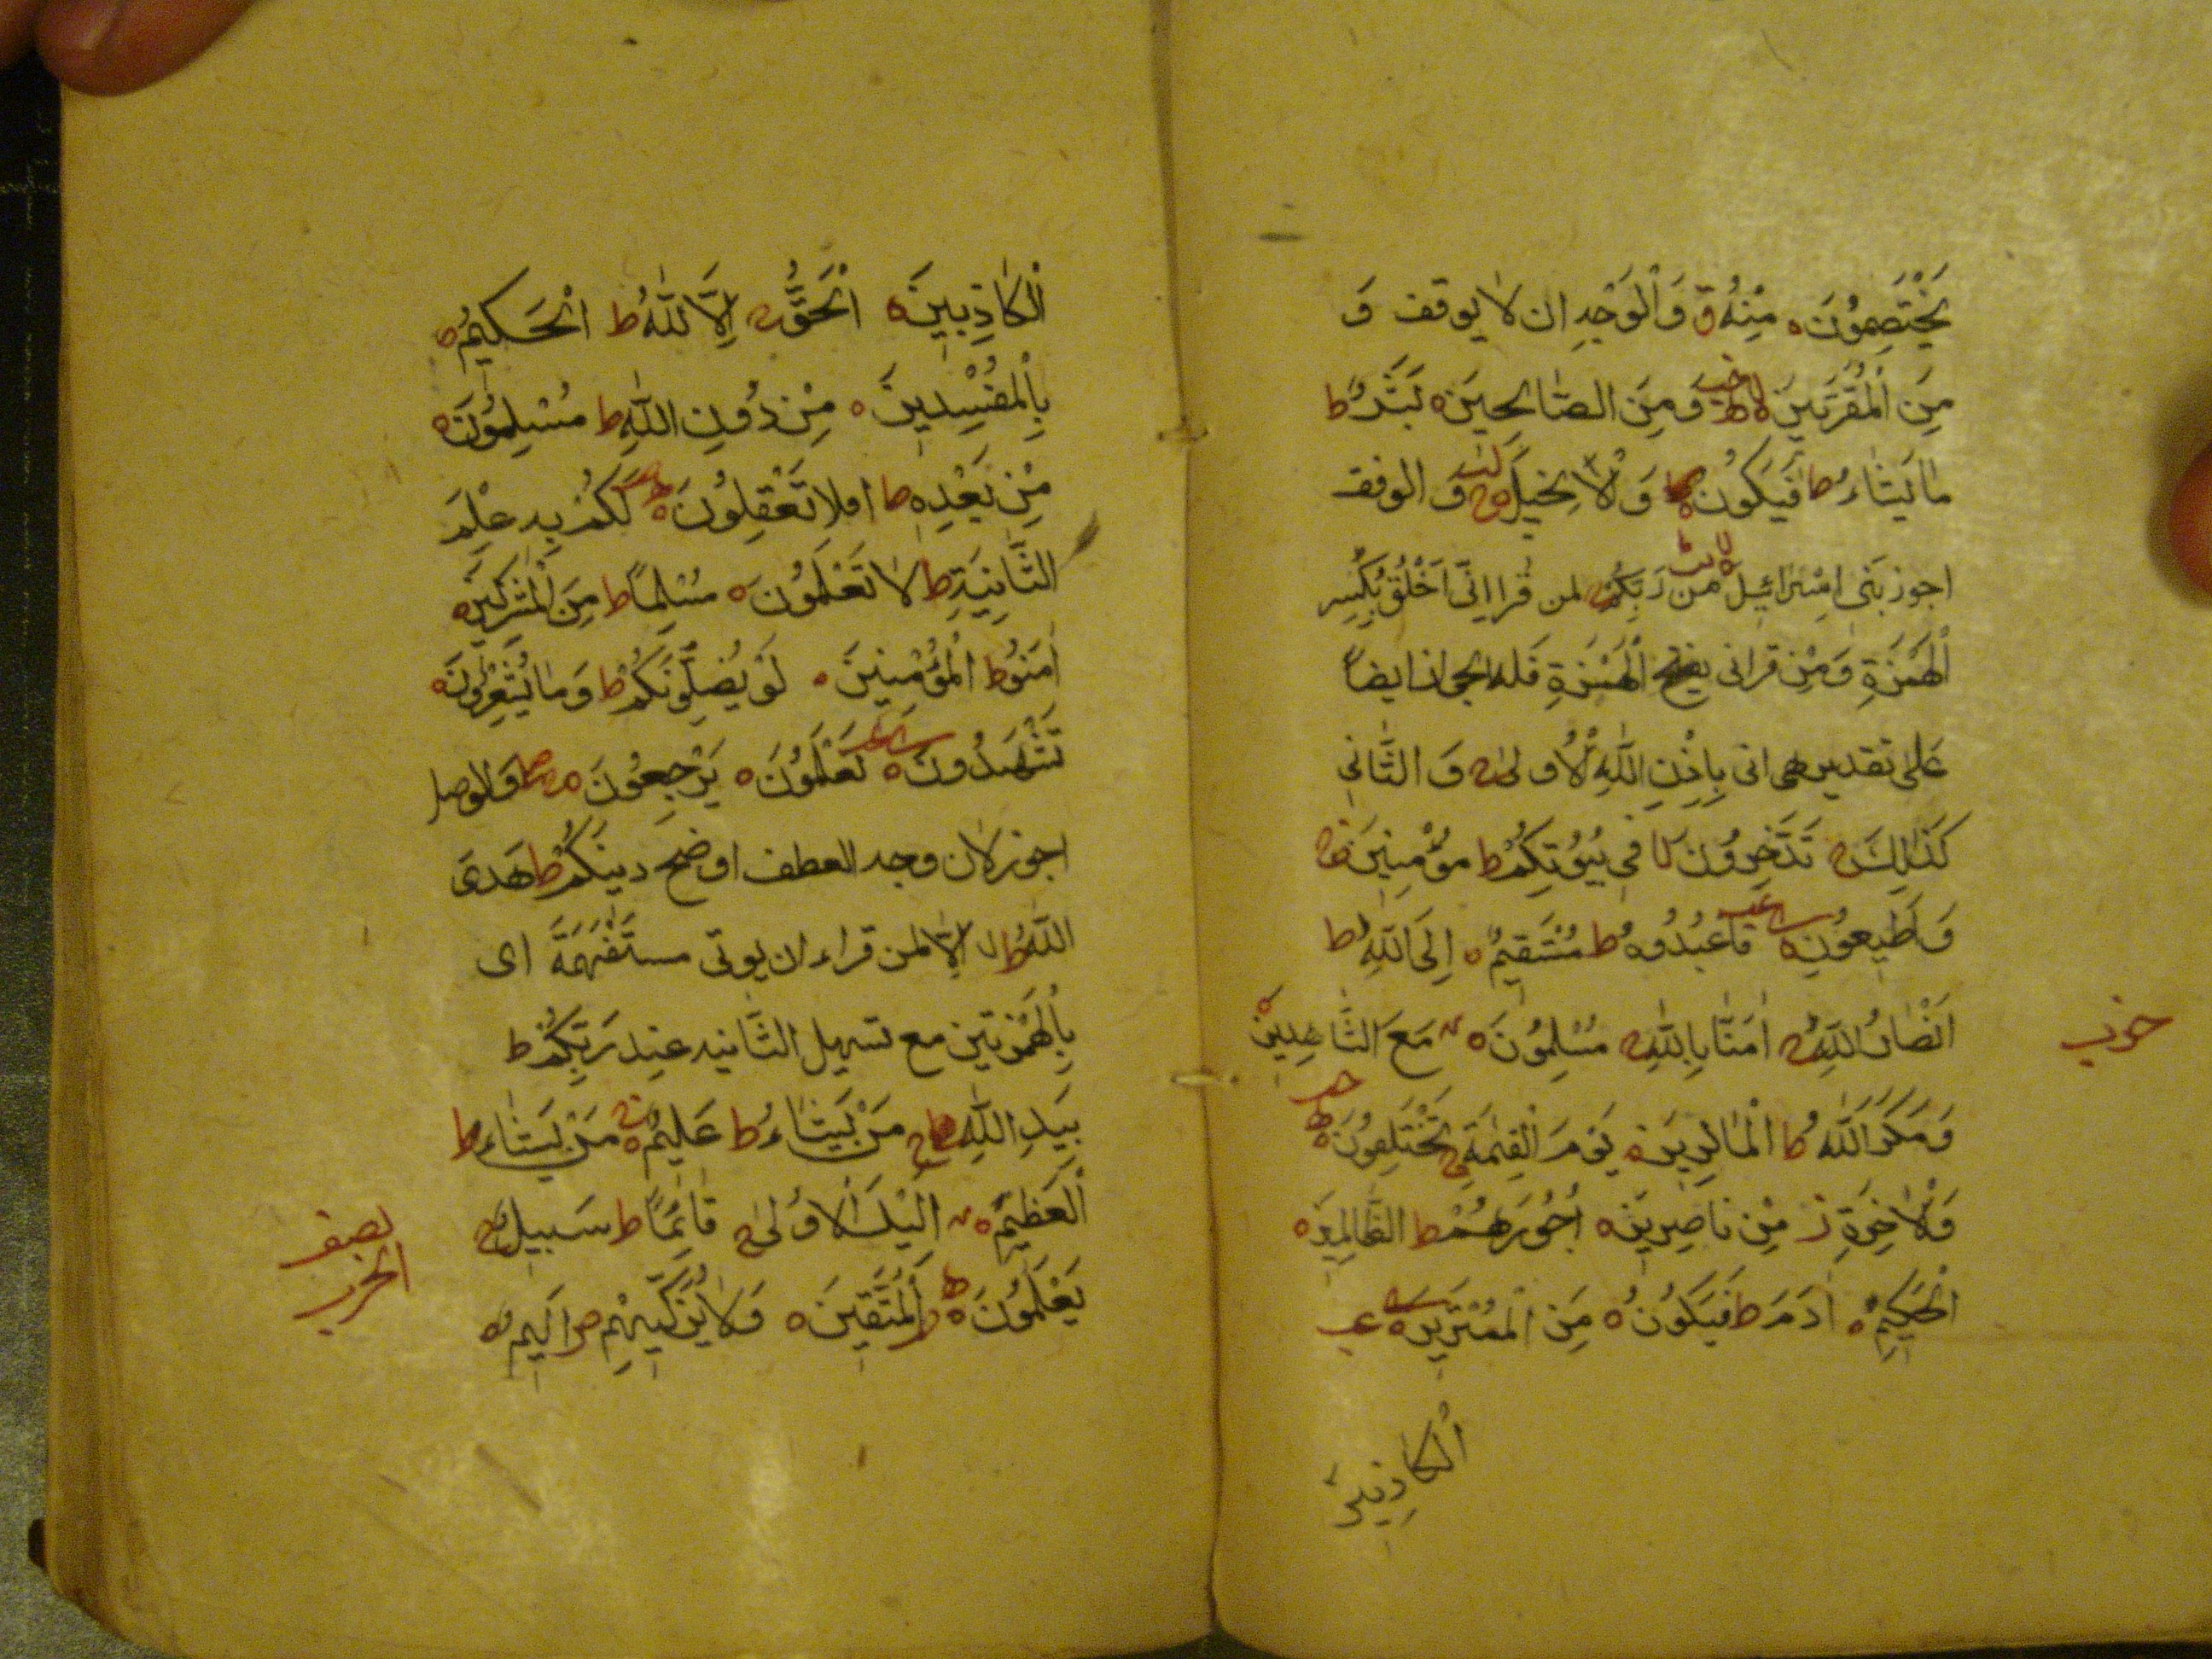 يَخْتَصِمُونَ ه مِنْهُ ق وَالْوَجْهِ ان لا يوقف وَ
مِنَ الْمُقَرَّبِينَ لا وَمِنَ الصَّالِحِينَ ه بَشَرٌ ط
مَا يَشَاءُ ط فَيَكُونُ ه وَالْاِنْجِيلَ ج وَالوقف
اجوز بَنِي اِسْرَائِيلَ مِن رَبِّكُمْ لمن قرا اِنِّي اَخْلُقُ بِكَسِر
الْهَمْزَةِ وَمِنْ قرا انى بفتح الْهَمْزَةِ فَله الجواز ايضاً
عَلى تقدير هى انى بِاِذْنِ اللّٰهِ الْاُولىٰ ج وَ الثَّانِي
كَذٰلِكَ ج تَدَّخِرُونَ لا فِي بُيُوتِكُمْ ط مُؤْمِنِينَ ه
وَاَطِيعُونِ ه فَاعْبُدُوهُ ط مُسْتَقِيمٌ ه اِلَى اللّٰهِ ط
اَنْصَارُ اللّٰهِ ج اٰمَنَّا بِاللّٰهِ ج مُسْلِمُونَ ه مَعَ الشَّاهِدِينَ ه
حزب
وَمَكَرَ اللّٰهُ ط الْمَاكِرِينَ ه يَوْمَ الْقِيٰمَةِ ج تَخْتَلِفُونَ ه
وَالْاٰخِرَةِ ز مِنْ نَاصِرِينَ ه اُجُورَهُمْ ط الظَّالِمِينَ ه
الْحَكِيمِ ه اٰدَمَ ط فَيَكُونُ ه مِنَ الْمُمْتَرِينَ ه عب
الْكَاذِبِينَ
الْكَاذِبِينَ ه الْحَقُّ ج اِلَّا اللّٰهُ ط الْحَكِيمُ ه
بِالْمُفْسِدِينَ ه مِنْ دُونِ اللّٰهِ ط مُسْلِمُونَ ه
مِنْ بَعْدِهِ ط افلا تَعْقِلُونَ ه لَكُمْ بِهِ عِلْمٌ
الثَّانِيَةِ ط لَا تَعْلَمُونَ ه مُسْلِمًا ط مِنَ الْمُشْرِكِينَ ه
اٰمَنُوا ط الْمُؤْمِنِينَ ه لَوْ يُضِلُّونَكُمْ ط وَمَا يَشْعُرُونَ ه
تَشْهَدُونَ ه تَعْلَمُونَ ه يَرْجِعُونَ ه وَالوصل
اجوز لان وجه العطف اوضح دِينَكُمْ ط هدى
اللّٰهِ ط لا اِلَّا لمن قراء ان يوتى مستَفْهَمَةً اى
بِالْهَمْزتين مع تسهيل الثَّانيه عِنْد رَبِّكُمْ ط
بِيَدِ اللّٰهِ ج مَنْ يَشَاءُ ط عَلِيمٌ ه مَنْ يَشَاءُ ط
الْعَظِيمِ ه اِلَيْكَ الاُولىٰ ج قَائِمًا ط سَبِيلٌ ج
نصف
الحزب
يَعْلَمُونَ ه الْمُتَّقِينَ ه وَلَا يُزَكِّيهِمْ ص اَلِيمٌ ه